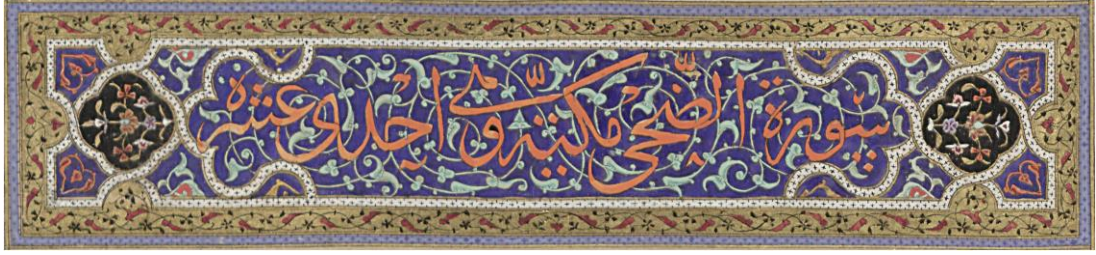 سورة الضحى مكية وهى احدى عشرة